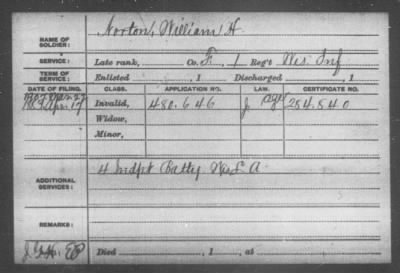 NAME OF SOLDIER: Norton, William H.
SERVICE: Late rank, Co. F, 1 Reg't Wis Inf
TERM OF SERVICE: Enlisted , 1 Discharged , 1
DATE OF FILING. CLASS. APPLICATION NO. LAW. CERTIFICATE NO.
1907 Mar 27
Apr. 17 Invalid, 480.646 J Age 254.540
Widow,
Minor,
ADDITIONAL SERVICES: 4 Indpt Batty Wis L A
REMARKS:
Died , 1 , at